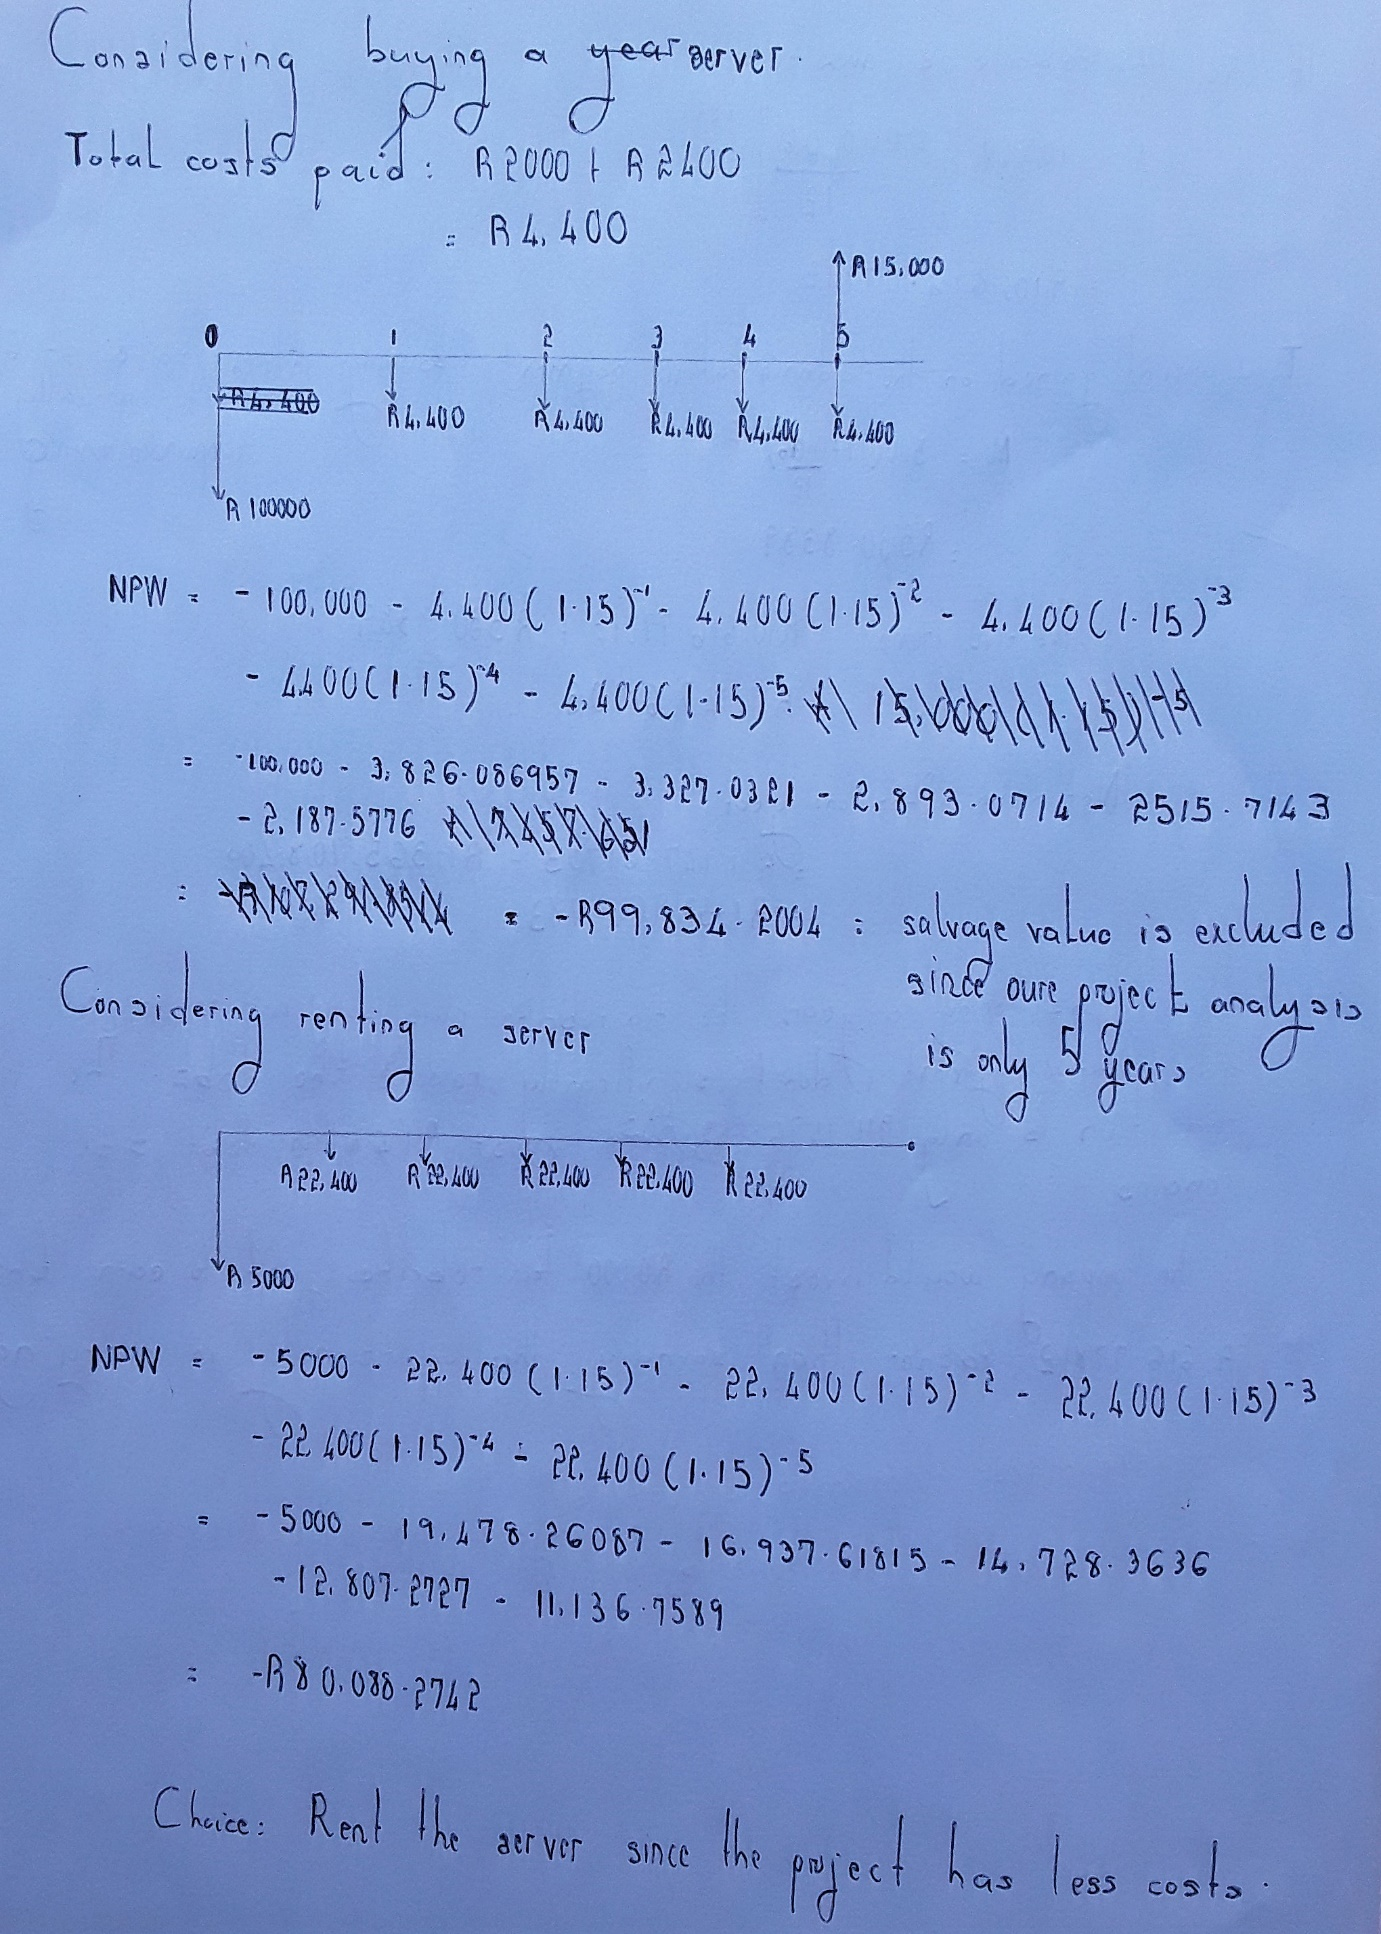 Considering buying a year server.
Total costs paid: R2000 + R2400
= R4,400
R15,000
0 1 2 3 4 5
R4,400 R4,400 R4,400 R4,400 R4,400 R4,400
R 100000
NPW = -100,000 - 4,400(1.15)⁻¹ - 4,400(1.15)⁻² - 4,400(1.15)⁻³
- 4400(1.15)⁻⁴ - 4,400(1.15)⁻⁵ + 15,000(1.15)⁻⁵
= -100,000 - 3,826.086957 - 3,327.0321 - 2,893.0714 - 2515.7143
- 2,187.5776 + 7457.651
= = -R99,834.2004 : salvage value is excluded
since oure project analysis
is only 5 years
Considering renting a server
R22,400 R22,400 R22,400 R22,400 R22,400
R 5000
NPW = -5000 - 22,400(1.15)⁻¹ - 22,400(1.15)⁻² - 22,400(1.15)⁻³
- 22400(1.15)⁻⁴ - 22,400(1.15)⁻⁵
= -5000 - 19,478.26087 - 16,937.61815 - 14,728.3636
- 12,807.2727 - 11,136.7589
= -R80,088.2742
Choice: Rent the server since the project has less costs.